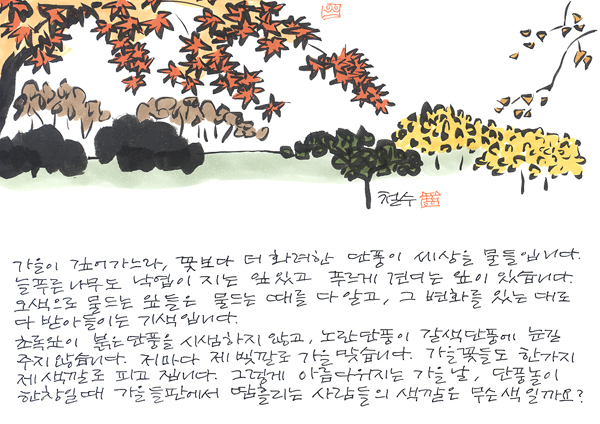 철수
가을이 깊어가느라, 꽃보다 더 화려한 단풍이 세상을 물들입니다.
늘푸른나무도 낙엽이 지는 잎 있고 푸르게 견디는 잎이 있습니다.
오색으로 물드는 잎들은 물드는 때를 다 알고, 그 변화를 있는 대로
다 받아들이는 기색입니다.
초록잎이 붉은단풍을 시샘하지 않고, 노란단풍이 갈색단풍에 눈길
주지 않습니다. 저마다 제 빛깔로 가을 맞습니다. 가을꽃들도 한가지
제 색깔로 피고 집니다. 그렇게 아름다워지는 가을날, 단풍놀이
한창일 때 가을들판에서 땀흘리는 사람들의 색깔은 무슨색일까요?